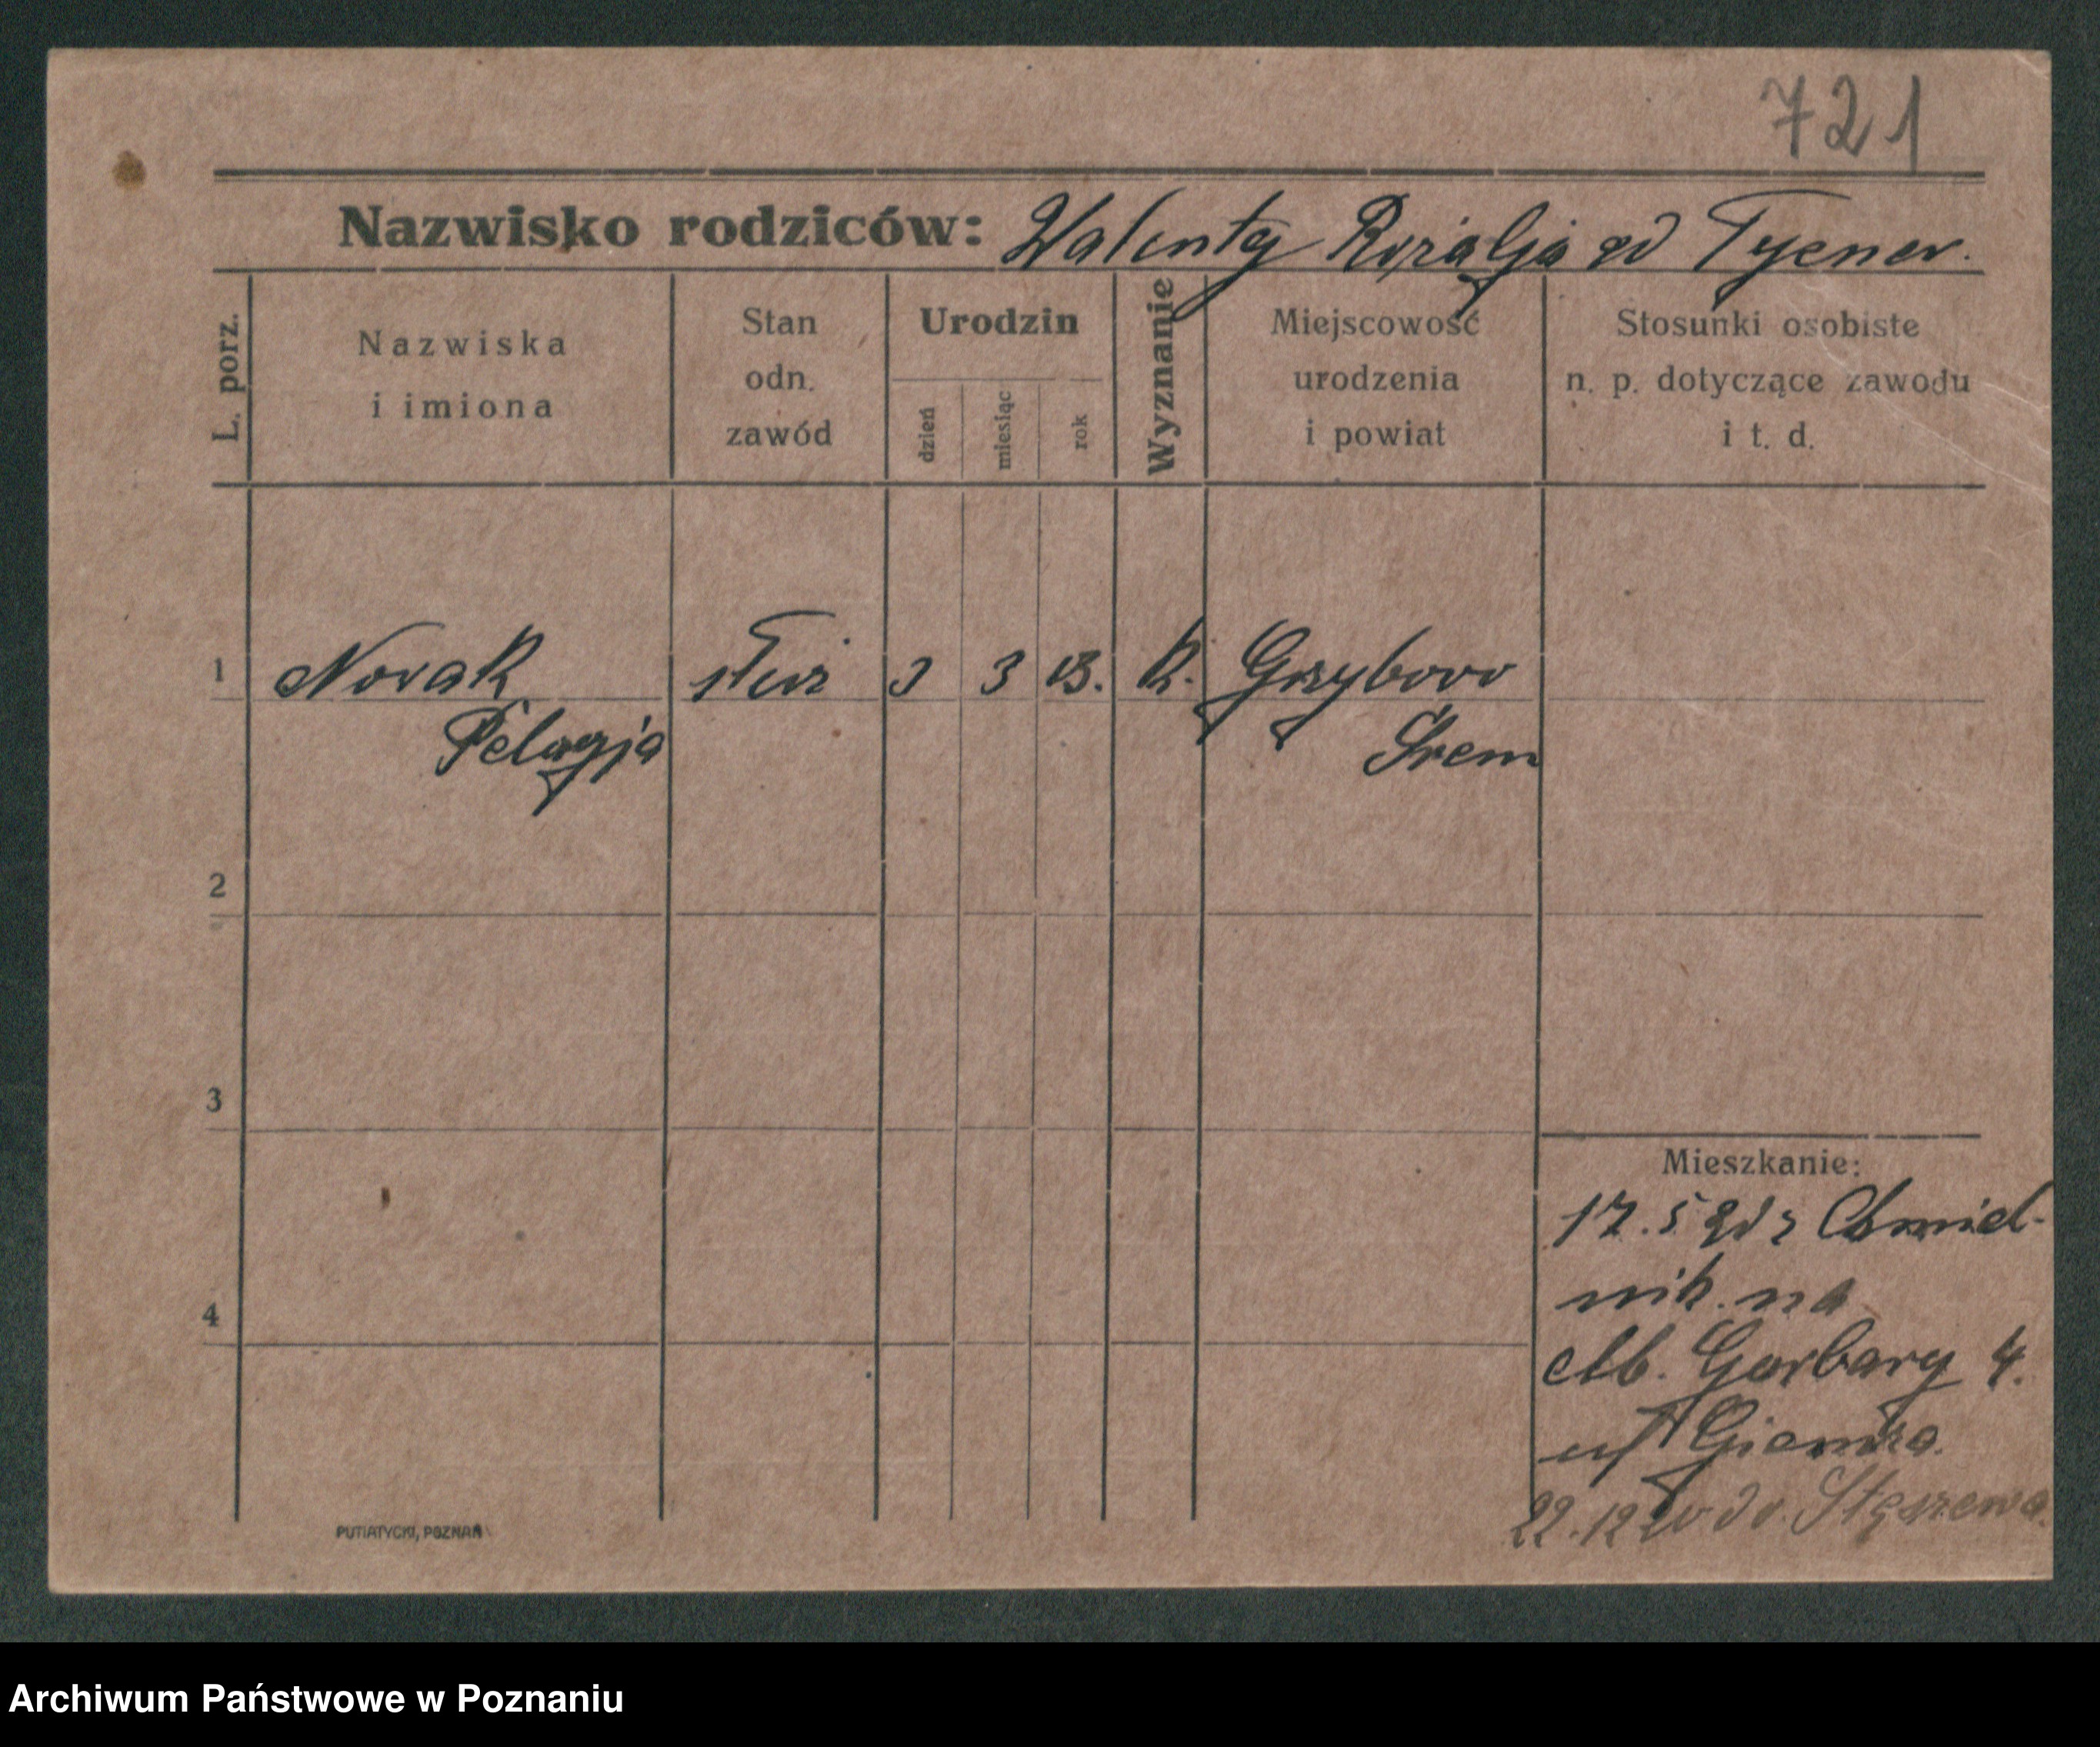 721
Nazwisko rodziców: Walenty Rozalja
L. porz.
Nazwiska
i imiona
Stan
odn.
zawód
Urodzin
dzień
miesiąc
rok
Wyznanie
Miejscowość
urodzenia
i powiat
Stosunki osobiste
n. p. dotyczące zawodu
i t. d.
1 Novak 3 3 13. R. Grzybovo
Pelagja Śrem
2
3
4
Mieszkanie:
17.5 Chmiel-
nik. na
Garbary 4.
22.12 Stęszewa
PUTIATYCKI, POZNAŃ
Archiwum Państwowe w Poznaniu